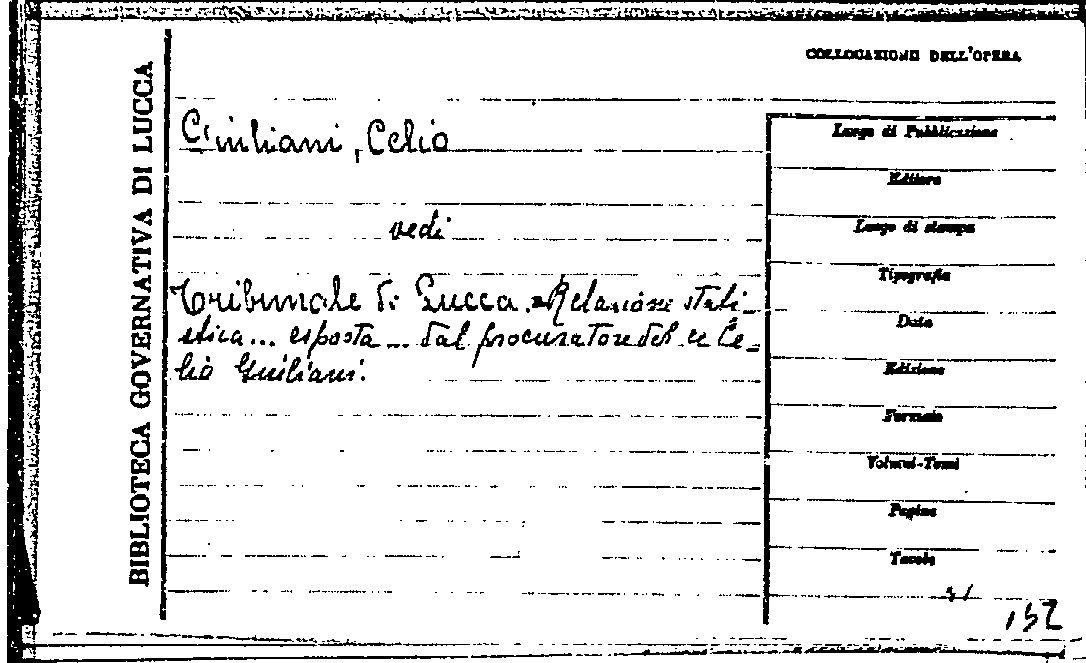 COLLOCAZIONE DELL'OPERA
BIBLIOTECA GOVERNATIVA DI LUCCA
Giuliani, Celio
vedi
Tribunale di Lucca. Relazione stati-
stica... esposta... dal procuratore del re Ce-
lio Giuliani.
Luogo di Pubblicazione
Editore
Luogo di stampa
Tipografia
Data
Edizione
Formato
Volumi-Tomi
Pagine
Tavole
152